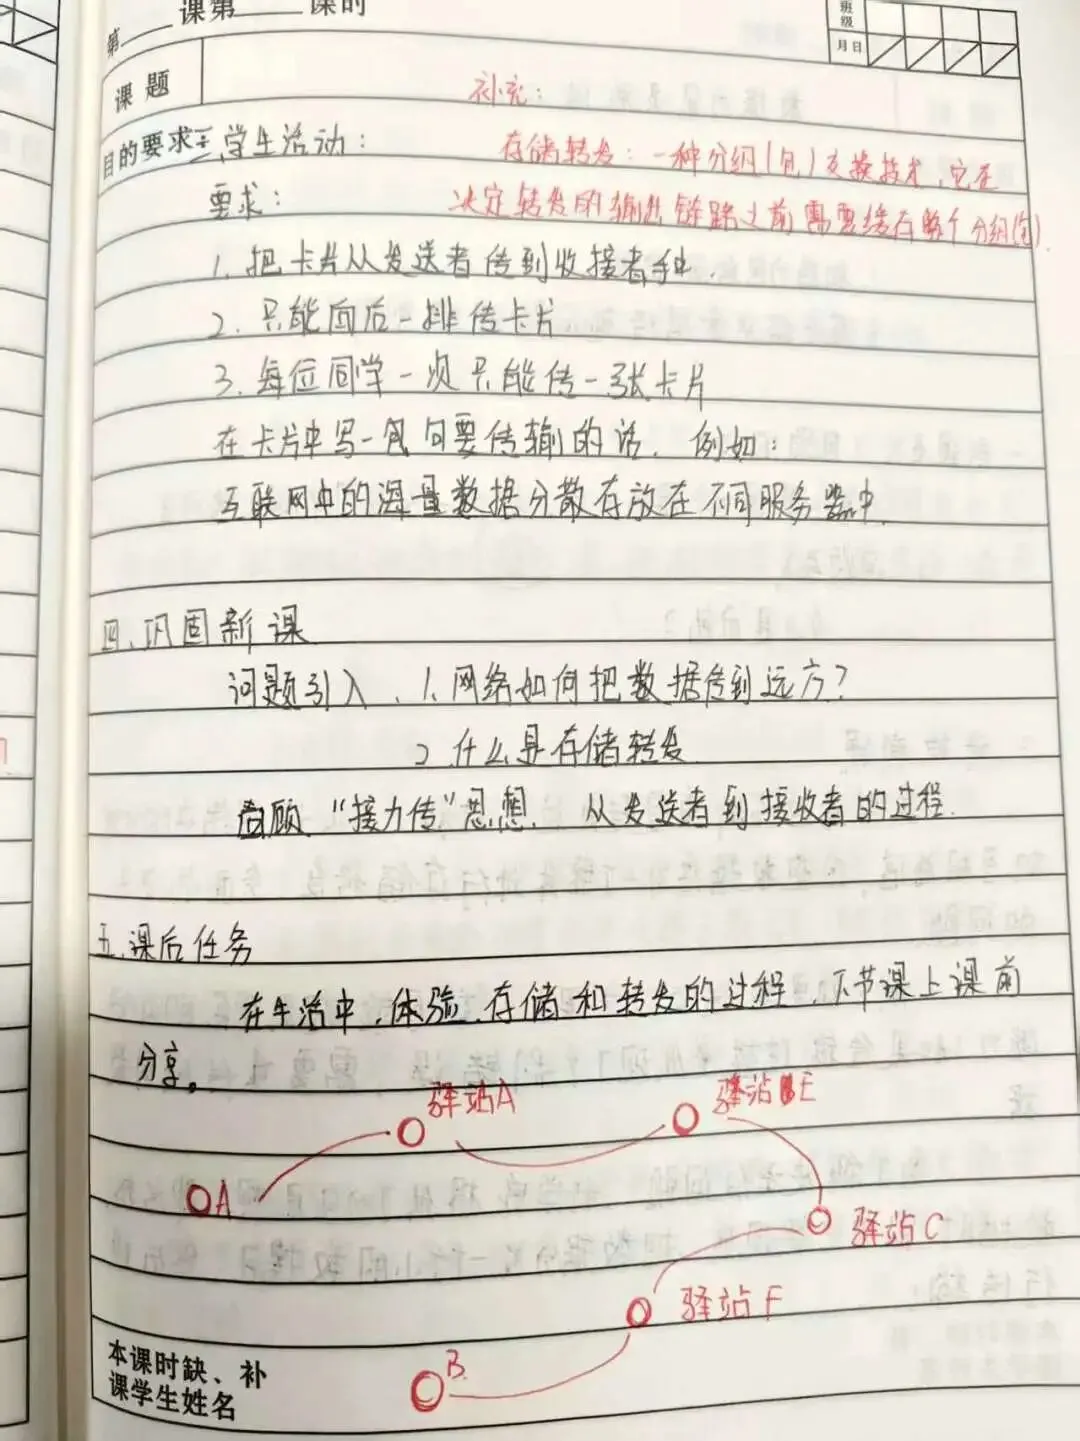 第 课第 课时
班级
月日
课题
补充：
目的要求
三、学生活动：
存储转发：一种分组(包)交换技术，它在
要求：
决定转发的输出链路之前需要缓存整个分组(包).
1. 把卡片从发送者传到收接者手中.
2. 只能向后一排传卡片
3. 每位同学一次只能传一张卡片
在卡片中写一句要传输的话. 例如：
互联网中的海量数据分散存放在不同服务器中.
四、巩固新课
问题引入、1. 网络如何把数据传到远方？
2. 什么是存储转发
回顾 “接力传”思想. 从发送者到接收者的过程.
五.课后任务
在生活中,体验,存储和转发的过程. 下节课上课前
分享。
驿站A
驿站E
A
驿站C
驿站F
B
本课时缺、补
课学生姓名